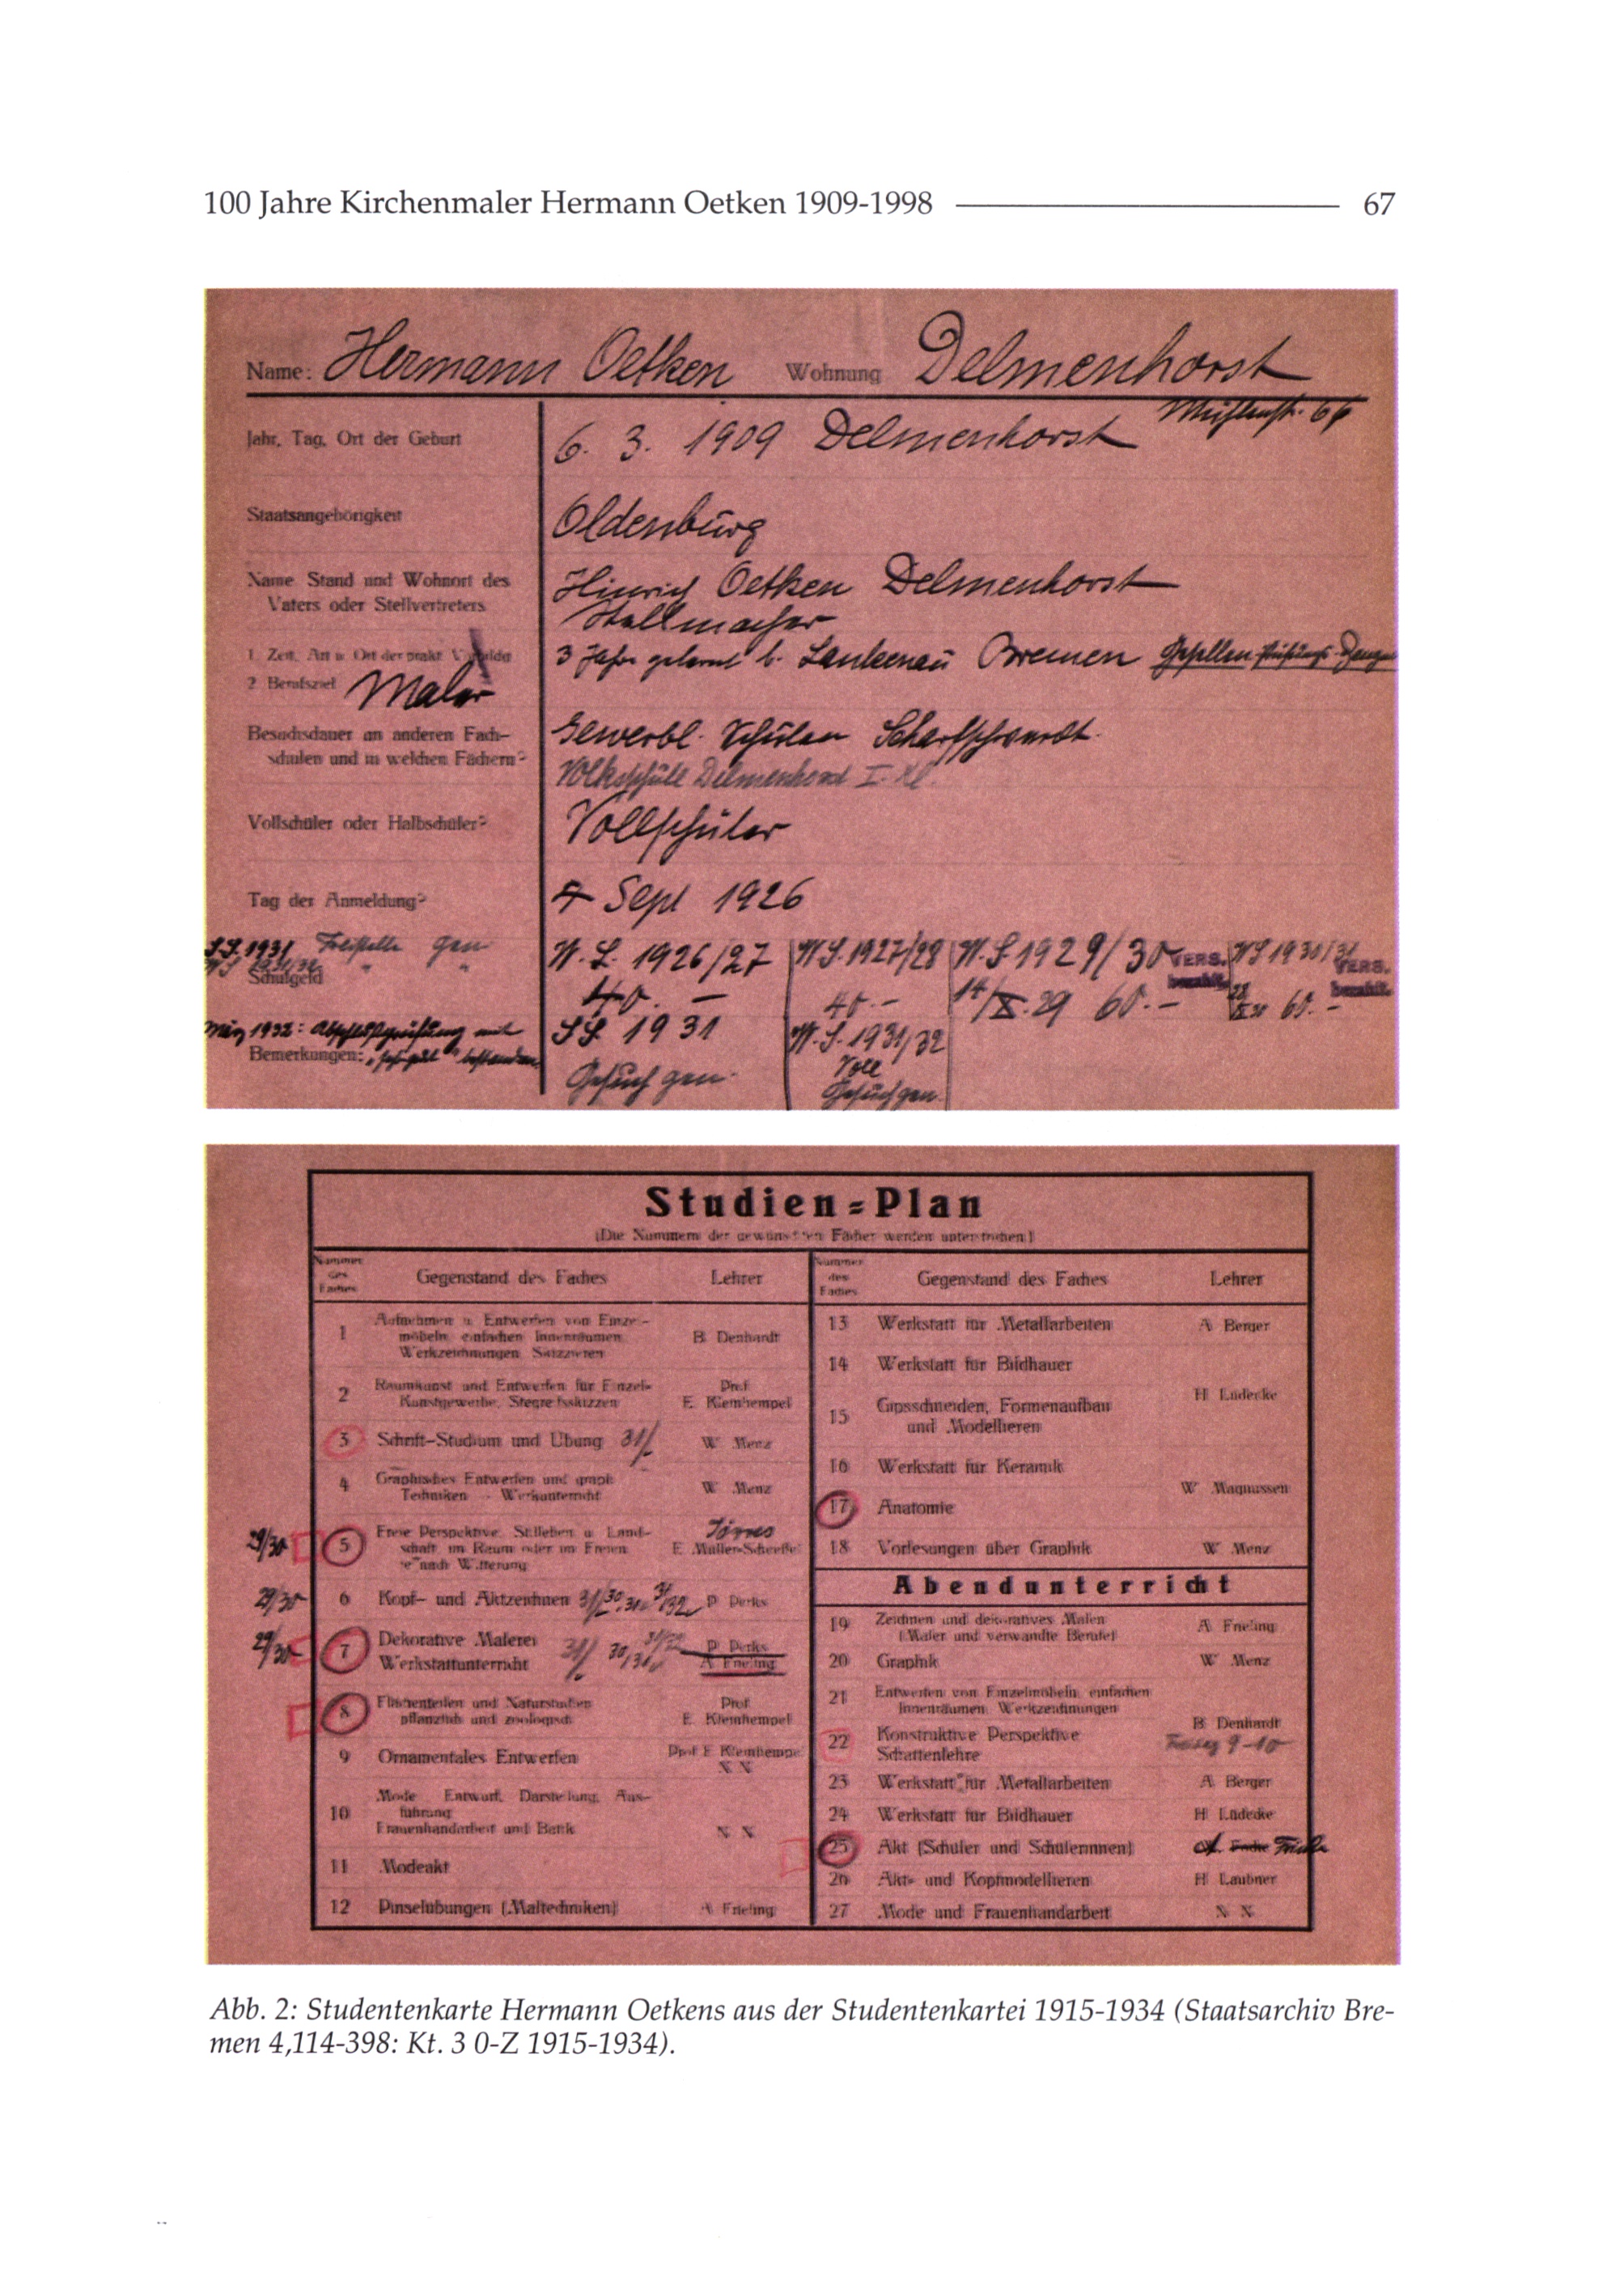 100 Jahre Kirchenmaler Hermann Oetken 1909-1998 67
Name: Hermann Oetken Wohnung Delmenhorst
Jahr, Tag, Ort der Geburt 6. 3. 1909 Delmenhorst
Staatsangehörigkeit Oldenburg
Name Stand und Wohnort des Hinrich Oetken Delmenhorst
Vaters oder Stellvertreters
1 Zeit, Art u. Ort der prakt.
3 Jahre gelernt b. Lankenau Bremen Gesellen
2 Berufsziel Maler
Besuchsdauer an anderen Fach-
schulen und in welchen Fächern?
Gewerbl.
Volksschule Delmenhorst I. Kl.
Vollschüler oder Halbschüler? Vollschüler
Tag der Anmeldung? 7 Sept 1926
S.S. 1931 Freistelle gen
Schulgeld
W. S. 1926/27 W.S. 1927/28 W.S. 1929/30 VERS. bezahlt. WS 1930/31 VERS. bezahlt.
40. — 40.— 14/X. 29 60.— 60.—
März 1932: Abschlußprüfung mit
Bemerkungen: "sehr gut" bestanden
SS. 1931 W.S. 1931/32
Voll
Gesuch gen. Gesuch gen.
Studien=Plan
(Die Nummern der gewünschten Fächer werden unterstrichen)
Nummer des Faches Gegenstand des Faches Lehrer
1 Aufnehmen u. Entwerfen von Einzel-
möbeln einfachen Innenräumen B. Denhardt
Werkzeichnungen Skizzieren
2 Raumkunst und Entwerfen für Einzel- Prof.
Kunstgewerbe, Stegreifskizzen E. Kleinhempel
3 Schrift-Studium und Übung 31/ W. Menz
4 Graphisches Entwerfen und graph. W. Menz
Techniken - Werkunterricht
29/30 5 Freie Perspektive. Stilleben u. Land-
schaft im Raum oder im Freien E. Müller-Scheeßel
je nach Witterung
29/30 6 Kopf- und Aktzeichnen P. Perks
29/30 7 Dekorative Malerei P. Perks
Werkstattunterricht 31/ 30/31 A. Frieling
8 Flächenteilen und Naturstudien Prof.
pflanzlich und zoologisch E. Kleinhempel
9 Ornamentales Entwerfen Prof E Kleinhempel
N N
Mode Entwurf, Darstellung, Aus-
10 führung
Frauenhandarbeit und Batik N N
11 Modeakt
12 Pinselübungen (Maltechniken) A. Frieling
Nummer des Faches Gegenstand des Faches Lehrer
13 Werkstatt für Metallarbeiten A. Berger
14 Werkstatt für Bildhauer
H. Lüdecke
15 Gipsschneiden, Formenaufbau
und Modellieren
16 Werkstatt für Keramik
W. Magnussen
17 Anatomie
18 Vorlesungen über Graphik W. Menz
Abendunterricht
19 Zeichnen und dekoratives Malen A. Frieling
(Maler und verwandte Berufe)
20 Graphik W. Menz
21 Entwerfen von Einzelmöbeln, einfachen
Innenräumen, Werkzeichnungen
B. Denhardt
22 Konstruktive Perspektive
Schattenlehre 9-10
23 Werkstatt für Metallarbeiten A. Berger
24 Werkstatt für Bildhauer H. Lüdecke
25 Akt (Schüler und Schülerinnen)
26 Akt- und Kopfmodellieren H. Laubner
27 Mode und Frauenhandarbeit N N
Abb. 2: Studentenkarte Hermann Oetkens aus der Studentenkartei 1915-1934 (Staatsarchiv Bre-
men 4,114-398: Kt. 3 0-Z 1915-1934).